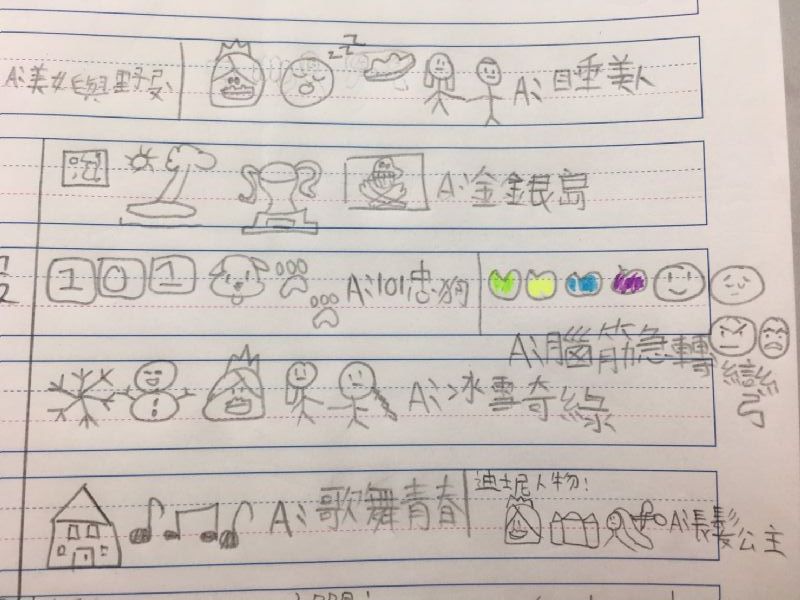 A:美女與野獸
zzz
A:睡美人
A:金銀島
101
A:101忠狗
A:腦筋急轉彎
A:冰雪奇緣
A:歌舞青春
迪士尼人物:
A:長髮公主